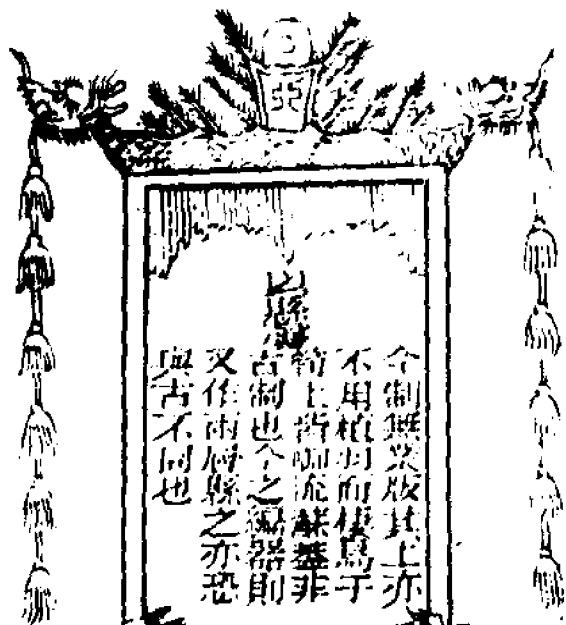 今制無業版其上亦
不用植羽而棲鳥于
筍上皆啣流蘇蓋非
古制也今之器則
又作兩層縣之亦恐
與古不同也